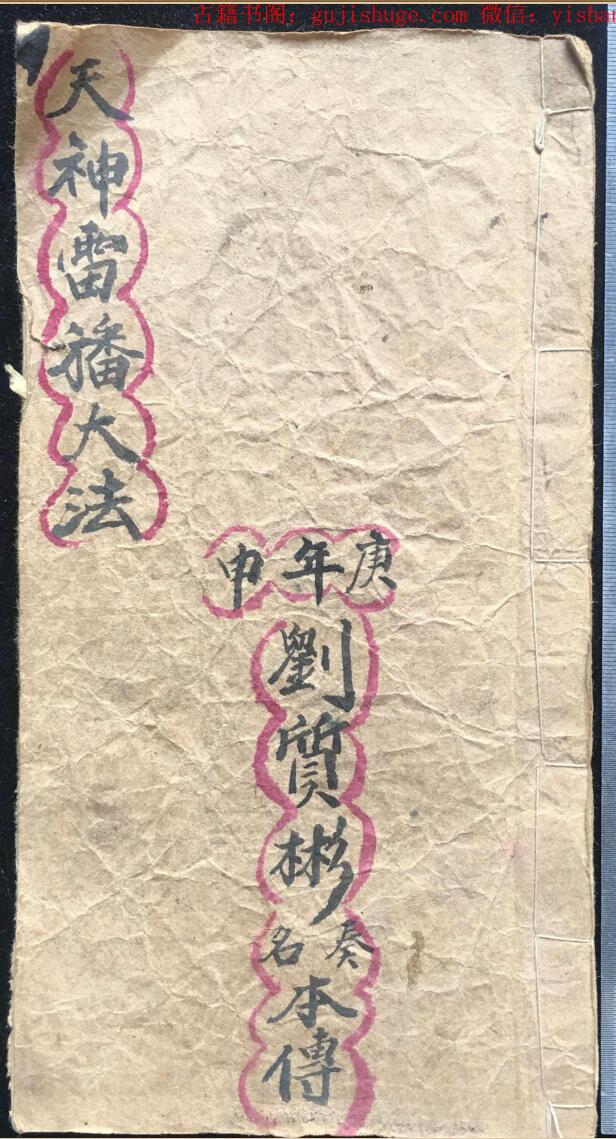 古籍书阁：gujishuge.com 微信：yishan
天神雷播大法
庚年申
劉質彬
奏名
本傳